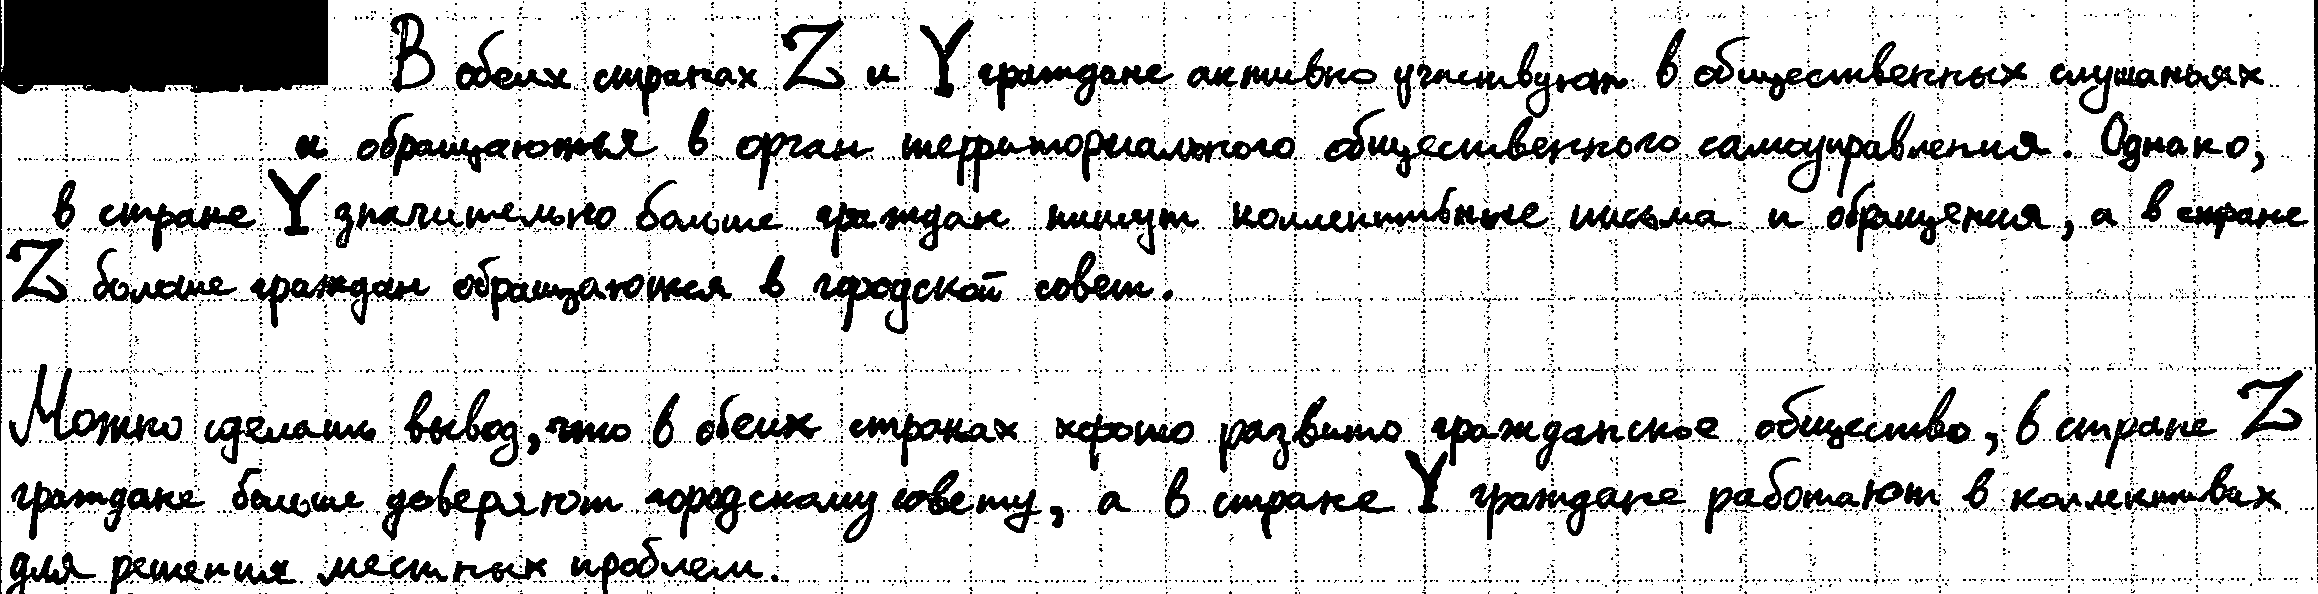 В обеих странах Z и Y граждане активно участвуют в общественных слушаньях
и обращаются в орган территориального общественного самоуправления. Однако,
в стране Y значительно больше граждан пишут коллективные письма и обращения, а в стране
Z больше граждан обращаются в городской совет.
Можно сделать вывод, что в обеих странах хорошо развито гражданское общество, в стране Z
граждане больше доверяют городскому совету, а в стране Y граждане работают в коллективах
для решения местных проблем.